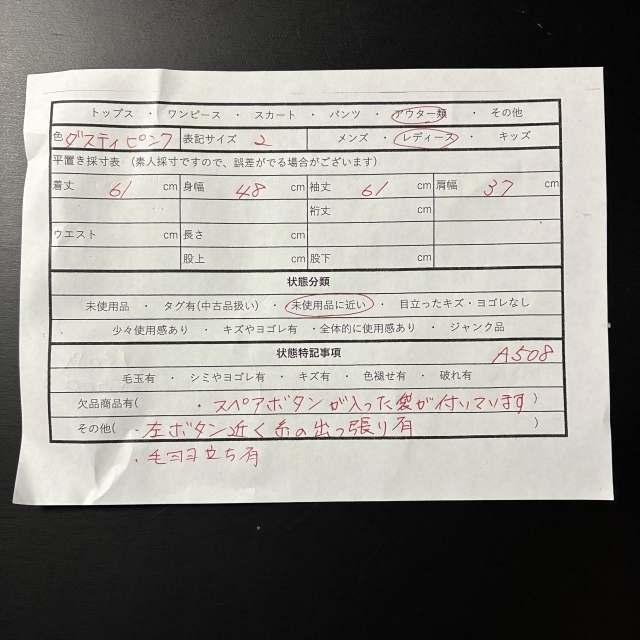 トップス ・ ワンピース ・ スカート ・ パンツ ・ アウター類 ・ その他
色 ダスティピンク 表記サイズ 2 メンズ ・ レディース ・ キッズ
平置き採寸表 (素人採寸ですので、誤差がでる場合がございます)
着丈 61 cm 身幅 48 cm 袖丈 61 cm 肩幅 37 cm
裄丈 cm
ウエスト cm 長さ cm
股上 cm 股下 cm
状態分類
未使用品 ・ タグ有(中古品扱い) ・ 未使用品に近い ・ 目立ったキズ・ヨゴレなし
・ 少々使用感あり ・ キズやヨゴレ有 ・全体的に使用感あり ・ ジャンク品
状態特記事項 A508
毛玉有 ・ シミやヨゴレ有 ・ キズ有 ・ 色褪せ有 ・ 破れ有
欠品商品有( ・スペアボタンが入った袋が付いています )
その他( ・左ボタン近く糸の出っ張り有 )
・毛羽立ち有